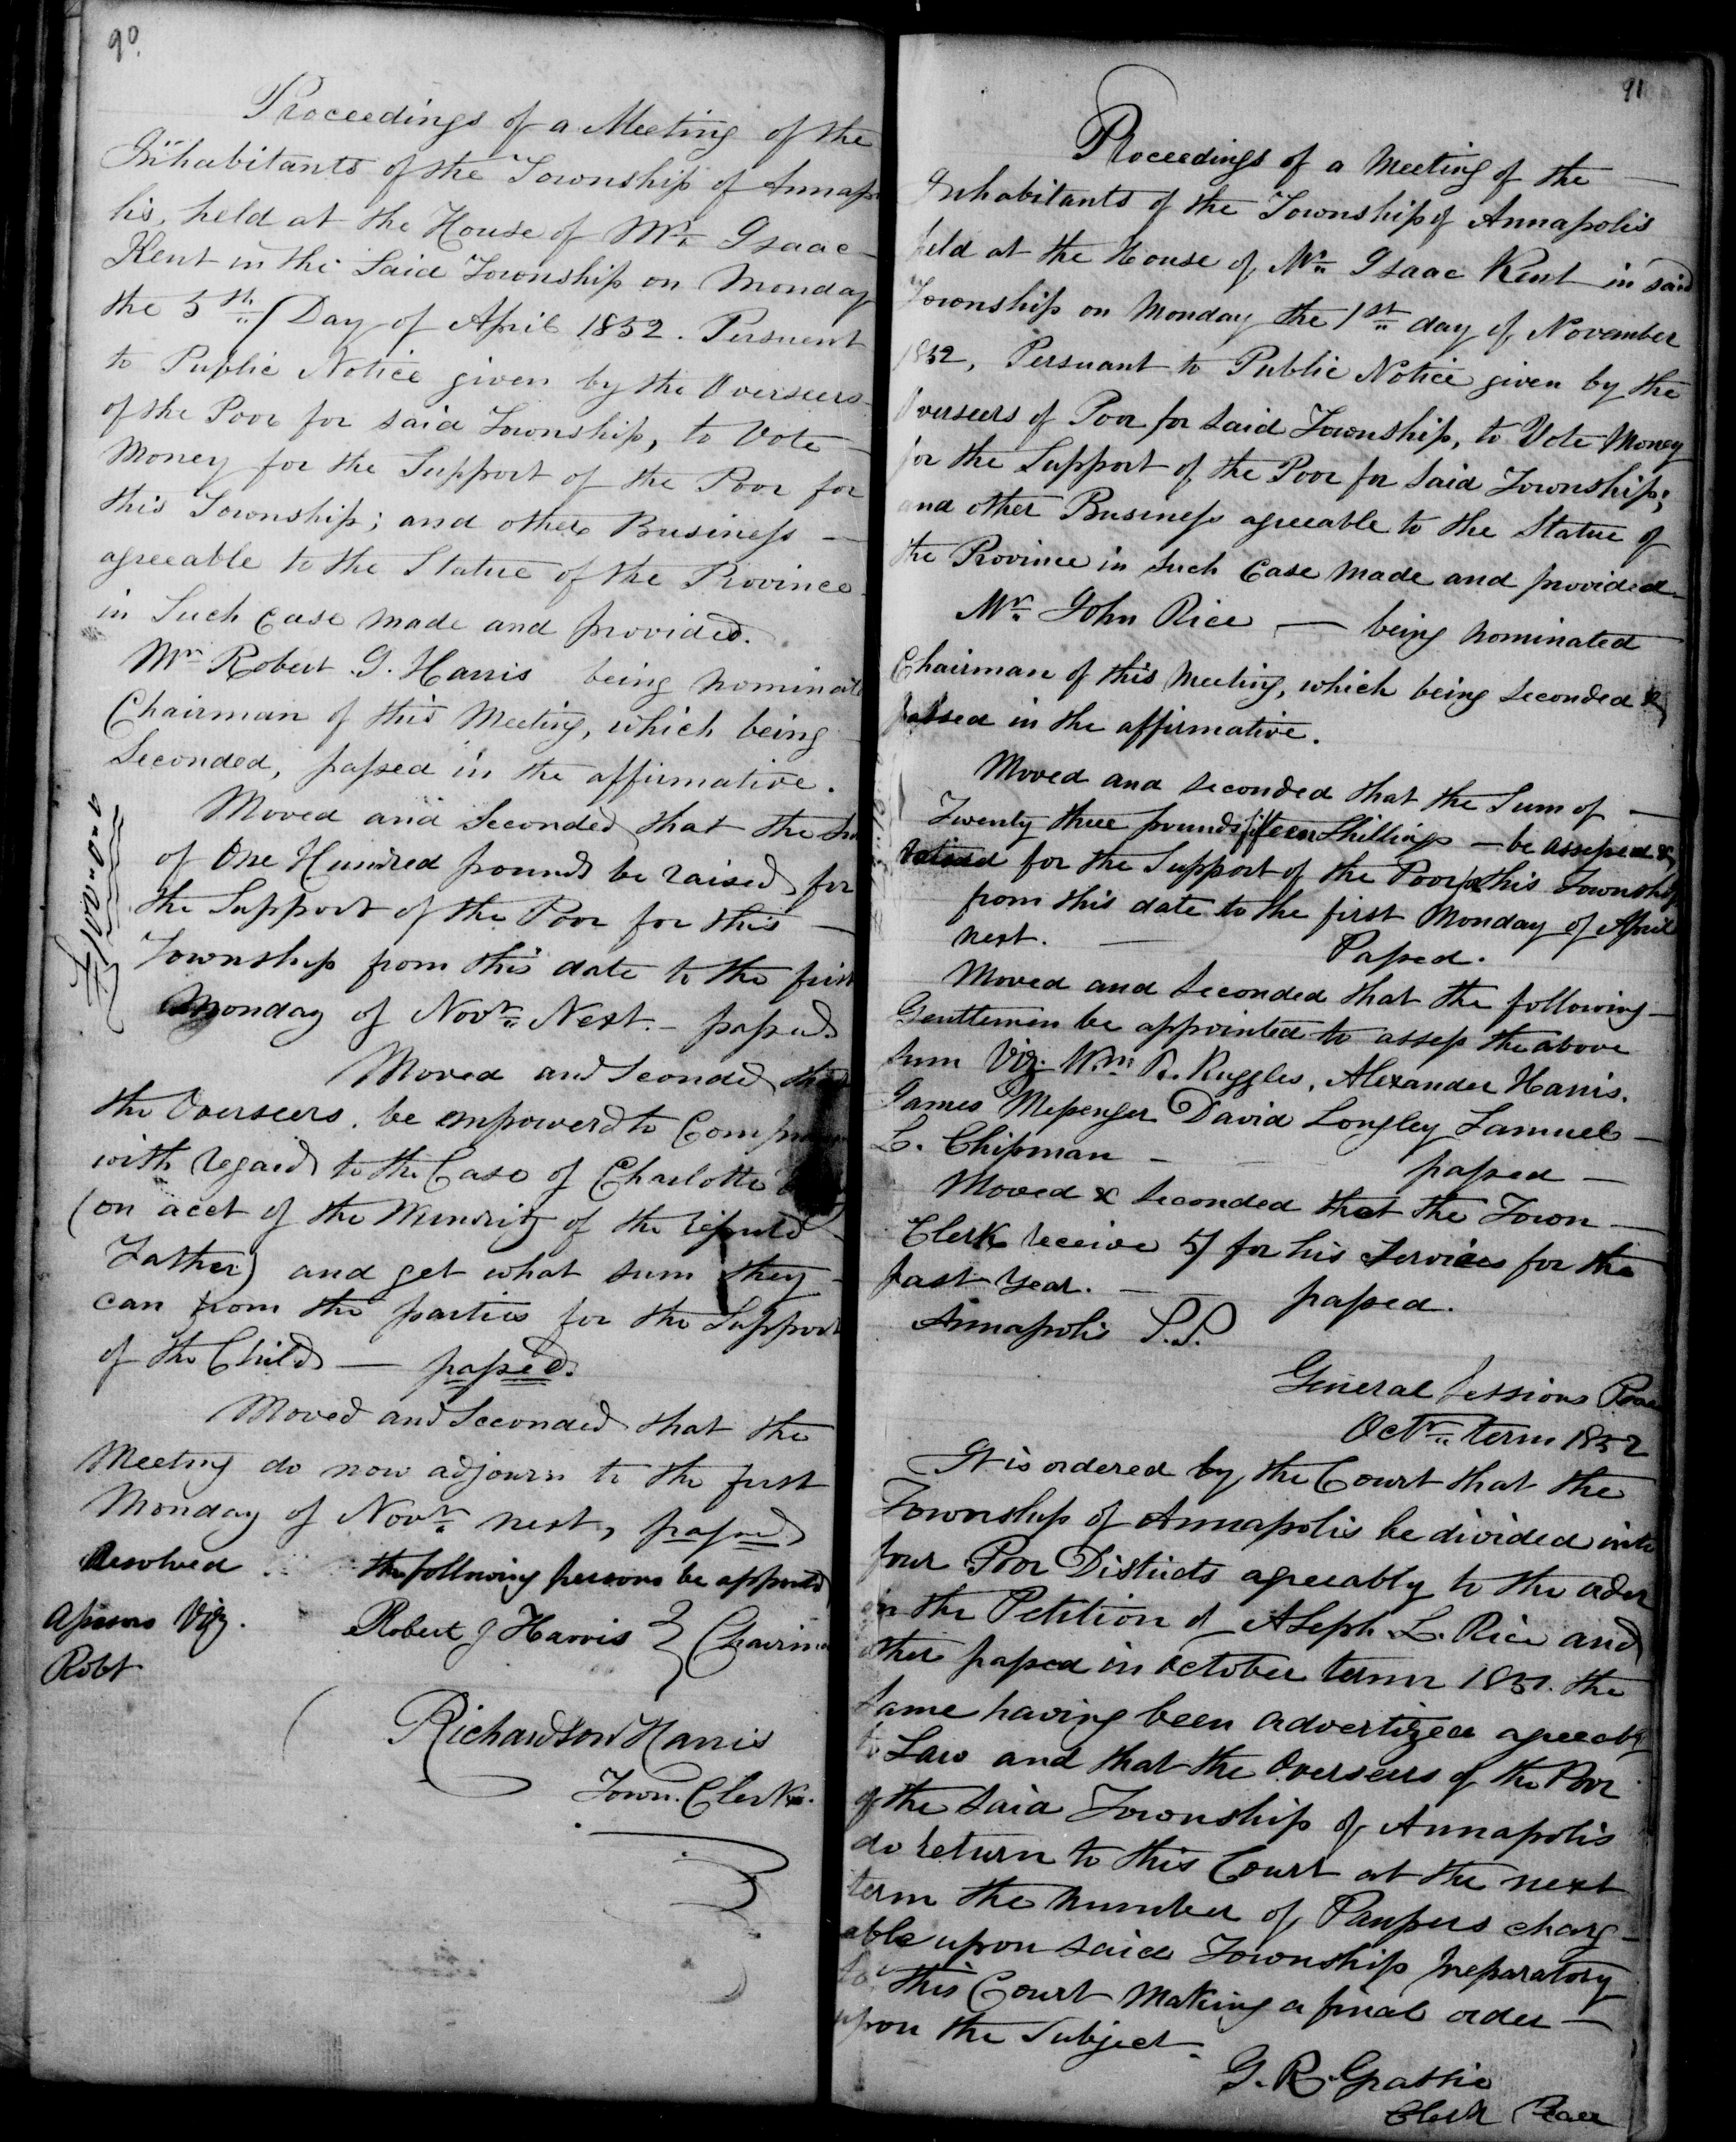 90.
Proceedings of a Meeting of the
Inhabitants of the Township of Annapo
lis, held at the House of Mr. Isaac
Kent in the Said Township on Monday
the 5th Day of April 1852. Persuent
to Public Notice given by the Overseers
of the Poor for said Township, to Vote
Money for the Support of the Poor for
this Township; and other Business —
agreeable to the Statue of the Province
in Such Case made and provided.
Mr. Robert J. Harris being nominate
Chairman of this Meeting, which being
Seconded, passed in the affirmative.
Moved and Seconded that the
of One Hundred pounds be raised for
the Support of the Poor for this —
Township from this date to the first
Monday of Novr. Next. – passed
Moved and Seconded that
the Overseers. be empowerd to
with regard to the Case of Charlotte
(on acct of the Minority of the reputed
Father) and get what sum they
can from the parties for the Support
of the Child — passed.
Moved and Seconded that the
Meeting do now adjourn to the first
Monday of Novr. next, passed
Resolved the following persons be appointed
Assessors Viz.
Robt
Robert J Harris } Chairman
Richardson Harris
Town. Clerk.
91
Proceedings of a Meeting of the —
Inhabitants of the Township of Annapolis
held at the House of Mr. Isaac Kent in said
Township on Monday the 1st day of November
1852, Persuant to Public Notice given by the
Overseers of Poor for said Township, to Vote Money
for the Support of the Poor for said Township;
and other Business agreeable to the Statue of
the Province in Such Case made and provided
Mr. John Rice — being nominated
Chairman of this Meeting, which being Seconded &
passed in the affirmative.
Moved and seconded that the Sum of —
Twenty three pounds fifteen Shillings — be assessed &
raised for the Support of the Poor for this Township
from this date to the first Monday of April
next. — Passed.
Moved and seconded that the following
Gentlemen be appointed to assess the above
sum Viz. Wm. R. Ruggles, Alexander Harris.
James Messenger David Longley Samuel —
L. Chipman – passed —
Moved & Seconded that the Town —
Clerk receive 5/ for his Services for the
past year. — passed.
Annapolis S.S.
General Sessions Peace
Octr. term 1852
It is ordered by the Court that the
Township of Annapolis be divided into
four Poor Districts agreeably to the order
in the Petition of Aseph. L. Rice and
other passed in October term 1851. the
same having been advertized agreeably
to Law and that the Overseers of the Poor
of the said Township of Annapolis
do return to this Court at the next
term the number of Paupers charg –
able upon said Township preparatory
to this Court Making a final order —
upon the Subject.
G. R. Grassie
Clerk Peace